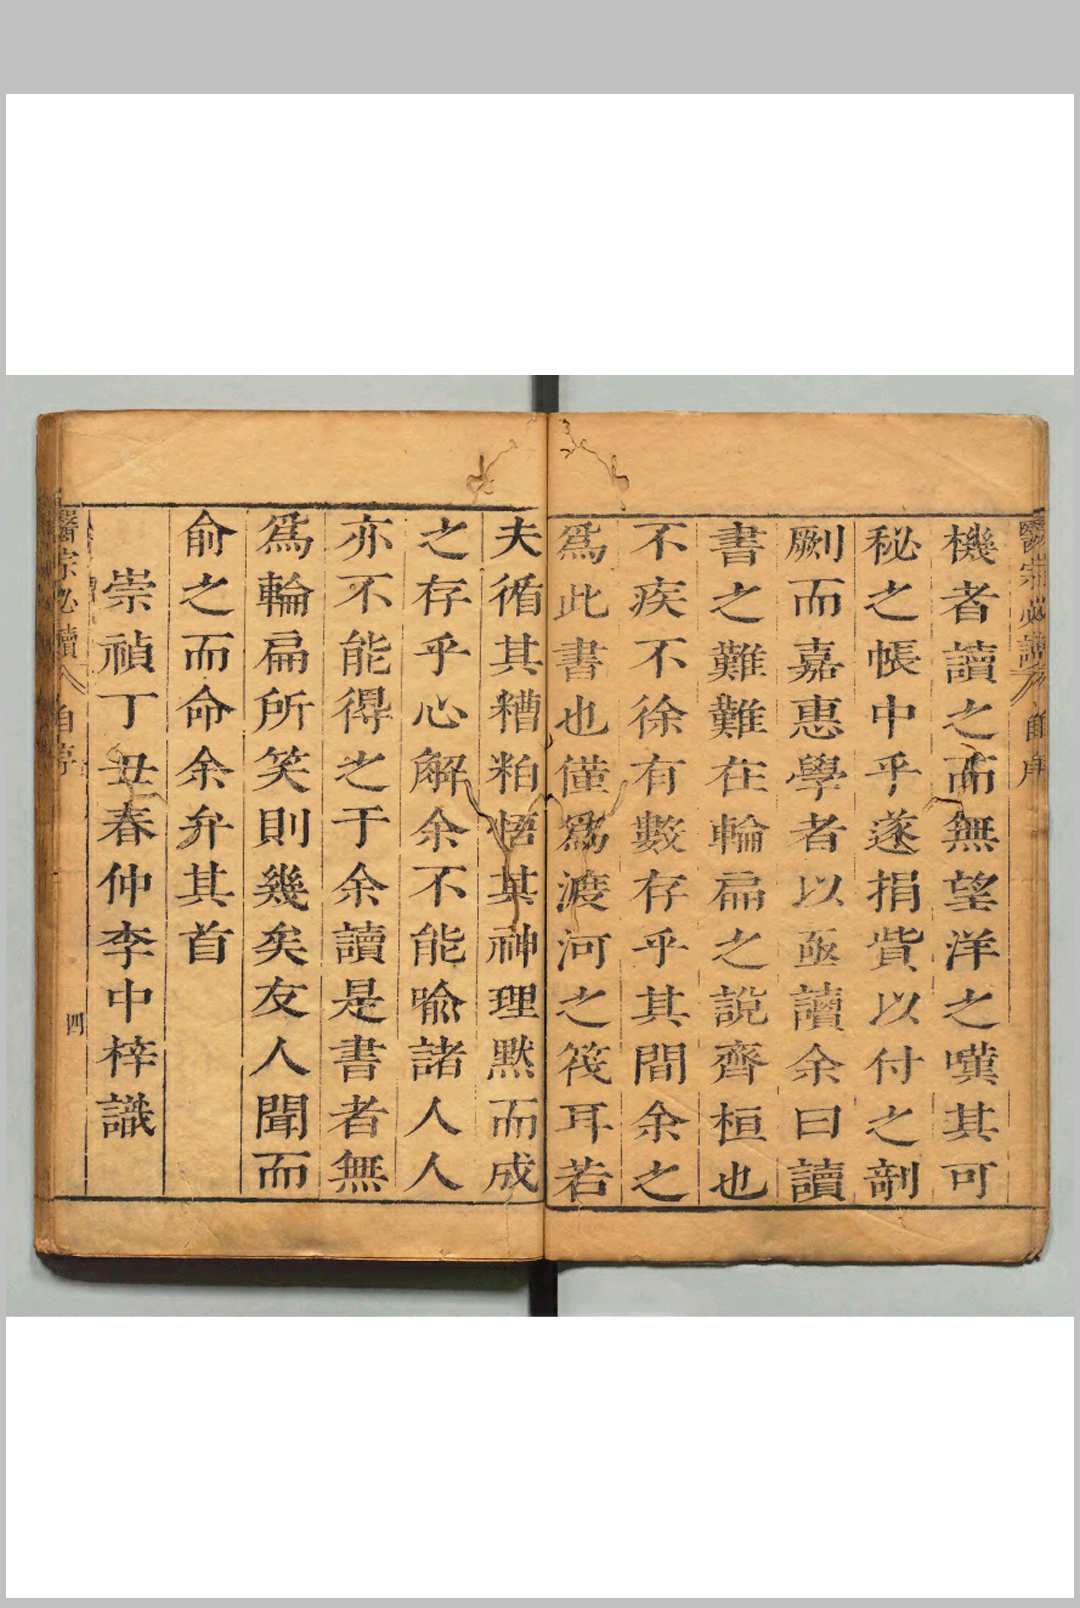 醫宗必讀 自序
機者讀之而無望洋之嘆其可
秘之帳中乎遂捐貲以付之剞
劂而嘉惠學者以亟讀余曰讀
書之難難在輪扁之說齊桓也
不疾不徐有數存乎其間余之
爲此書也僅爲渡河之筏耳若
夫循其糟粕悟其神理默而成
之存乎心解余不能喩諸人人
亦不能得之于余讀是書者無
爲輪扁所笑則幾矣友人聞而
俞之而命余弁其首
崇禎丁丑春仲李中梓識
醫宗必讀 自序 四